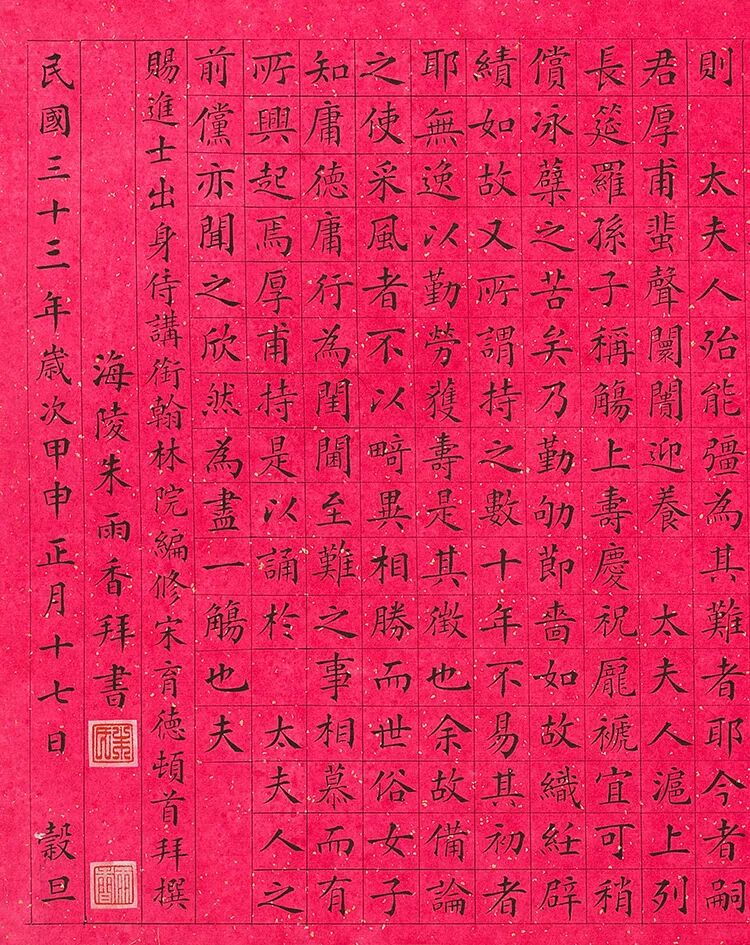 則 太夫人殆能彊為其難者耶今者嗣
君厚甫蜚聲闤闠迎養 太夫人滬上列
長筵羅孫子稱觴上壽慶祝龐褫宜可稍
償泳蘗之苦矣乃勤劬節嗇如故織紝辟
績如故又所謂持之數十年不易其初者
耶無逸以勤勞獲壽是其徵也余故備論
之使采風者不以畸異相勝而世俗女子
知庸德庸行為閨閫至難之事相慕而有
所興起焉厚甫持是以誦於 太夫人之
前儻亦聞之欣然為盡一觴也夫
賜進士出身侍講銜翰林院編修宋育德頓首拜撰
海陵朱雨香拜書
民國三十三年歲次甲申正月十七日 穀旦